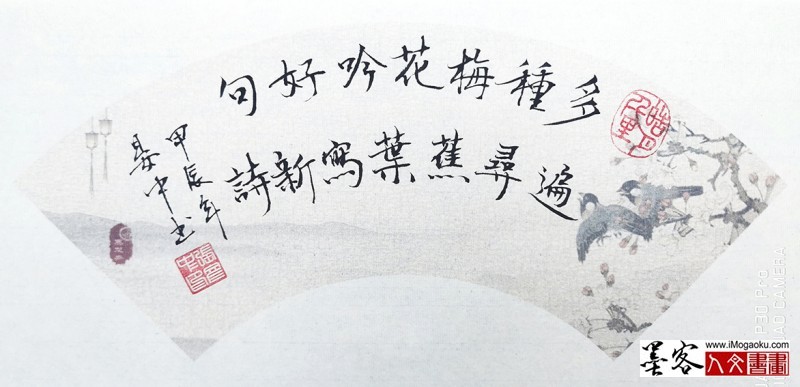 多種梅花吟好句
遍尋蕉葉寫新詩
甲辰年
中书
P30 Pro
CAMERA
墨客
www.iMogaoku.com
人文書畫